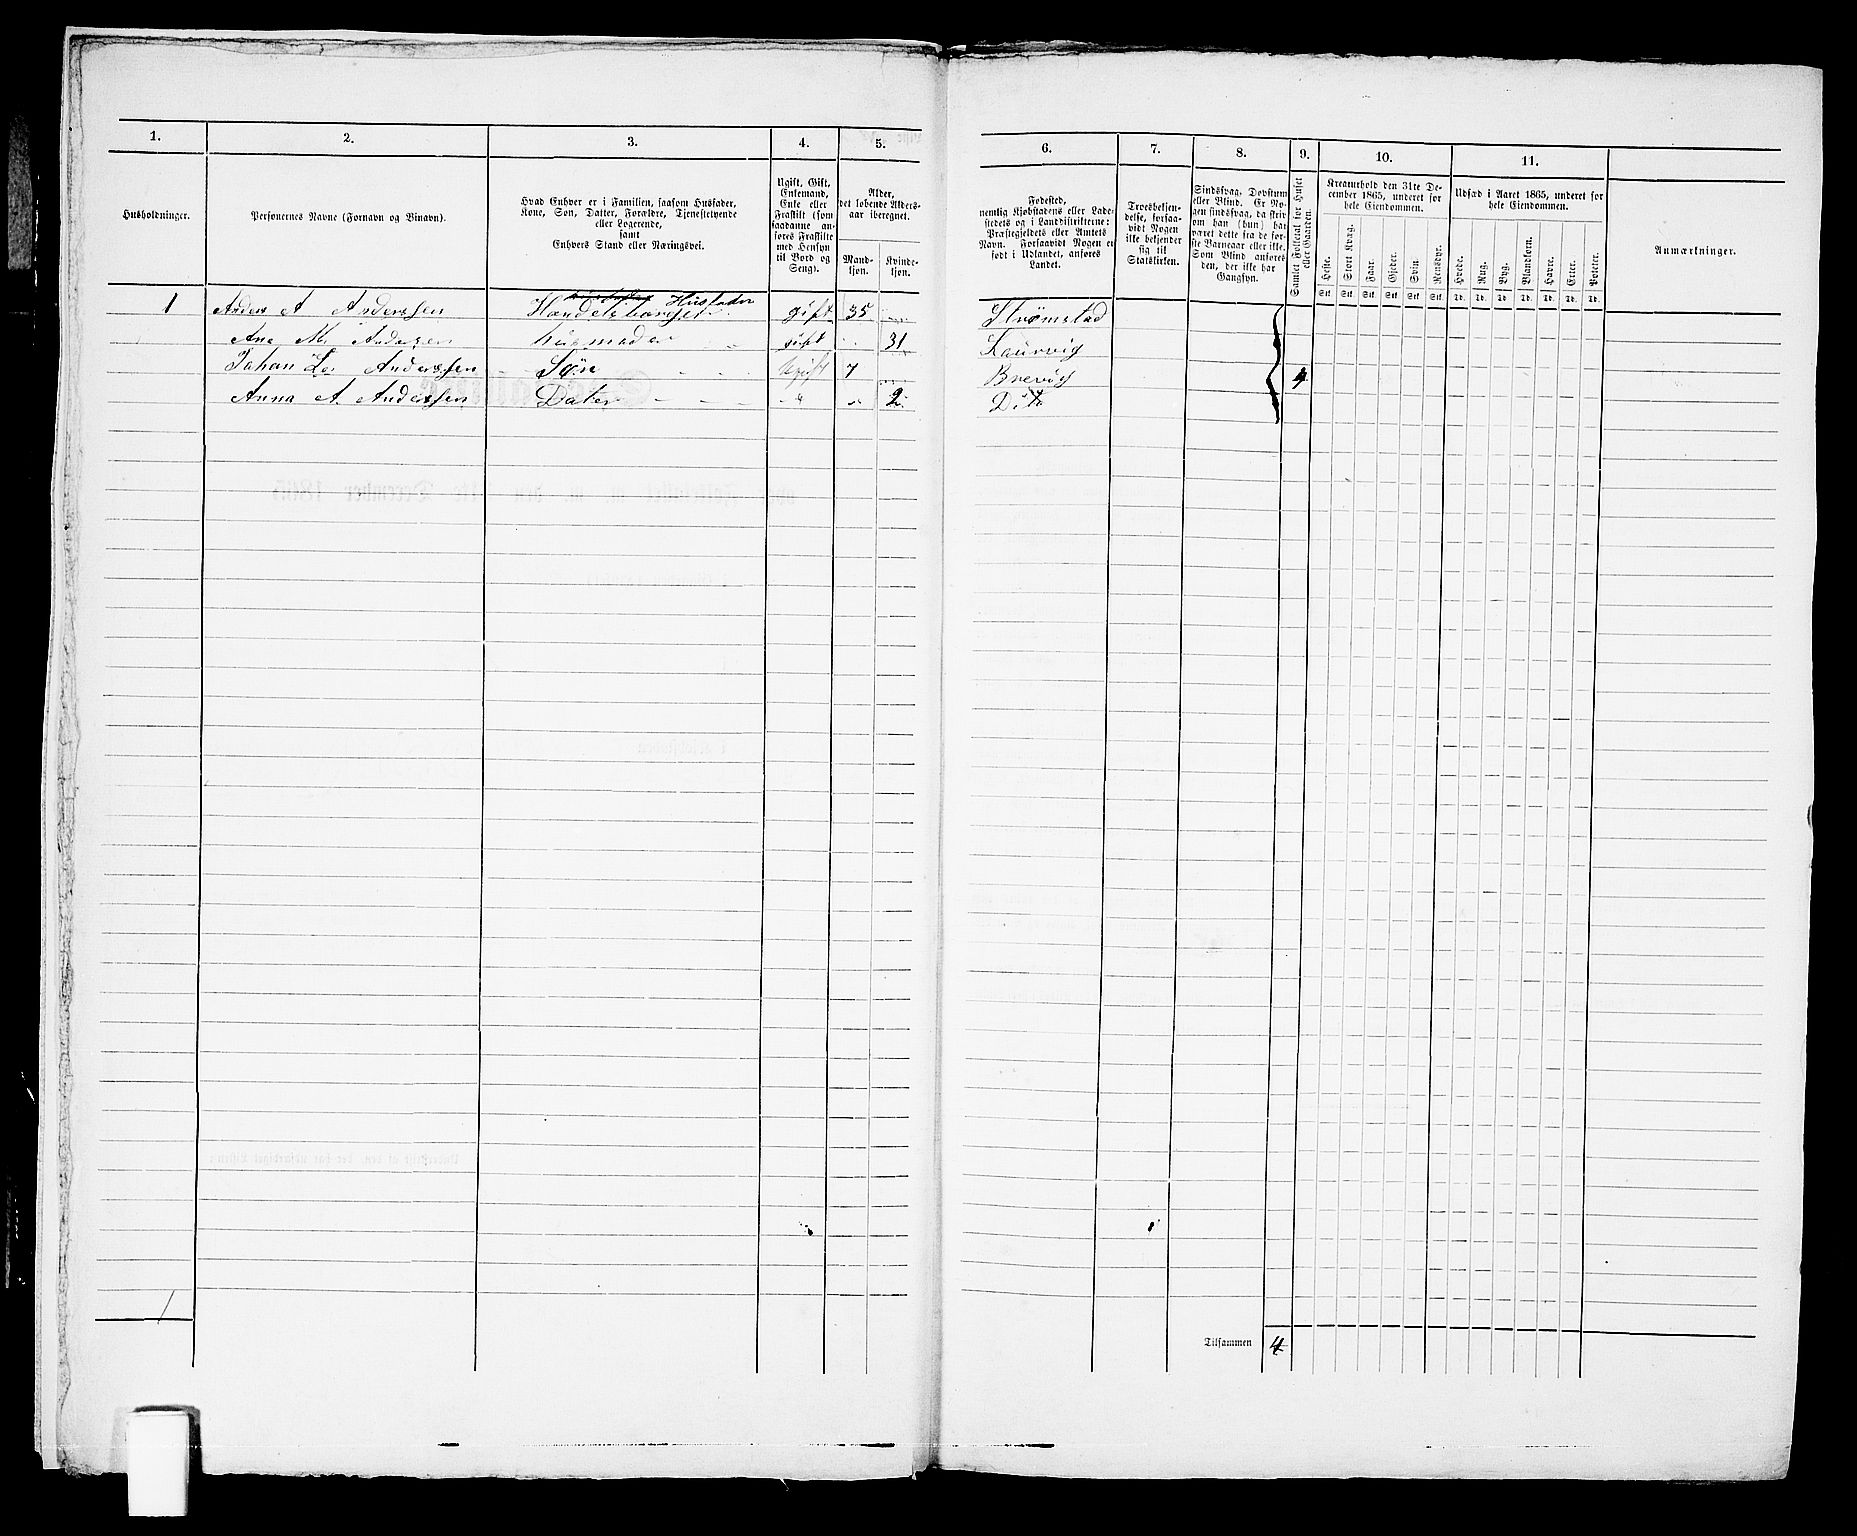 1.
2.
3.
4.
5.
6.
7.
8.
9.
10.
11.
Husholdninger.
Personernes Navne (Fornavn og Binavn).
Hvad Enhver er i Familien, saasom Husfader,
Kone, Søn, Datter, Forældre, Tjenestetyende
eller Logerende,
samt
Enhvers Stand eller Næringsvei.
Ugift, Gift,
Enkemand,
Enke eller
Fraskilt (som
saadanne anføres
Fraskilte
med Hensyn
til Bord og
Seng).
Alder,
det løbende Alders-
aar iberegnet.
Mand-
kjøn.
Kvinde-
kjøn.
Fødested,
nemlig Kjøbstadens eller Lade-
stedets og i Landdistrikterne:
Præstegjeldets eller Amtets
Navn. Forsaavidt Nogen er
født i Udlandet, anføres
Landet.
Troesbekjen-
delse, forsaa-
vidt Nogen
ikke bekjender
sig til
Statskirken.
Sindssvag, Døvstum
eller Blind. Er No-
gen sindssvag, da skriv
om han (hun) har
været dette fra de før-
ste Barneaar eller ikke.
Som Blind anføres
den, der ikke har
Gangsyn.
Samlet Folketal for Huset
eller Gaarden.
Kreaturhold den 31te De-
cember 1865, underet for
hele Eiendommen.
Heste. Stort Kvæg. Faar. Gjeder. Svin. Rensdyr.
Stk. Stk. Stk. Stk. Stk. Stk.
Udsæd i Aaret 1865, underet for
hele Eiendommen.
Hvede. Rug. Byg. Blandkorn. Havre. Erter. Poteter.
Td. Td. Td. Td. Td. Td. Td.
Anmærkninger.
Husfader
1 Anders A Anderssen gift 35 Strømstad
Ana M. Andersen husmoder gift 31 Laurvig
Johan Anderssen Søn Ugift 7 Brevig 4
Anna A. Anderssen Dater 2 Dito
Tilsammen 4